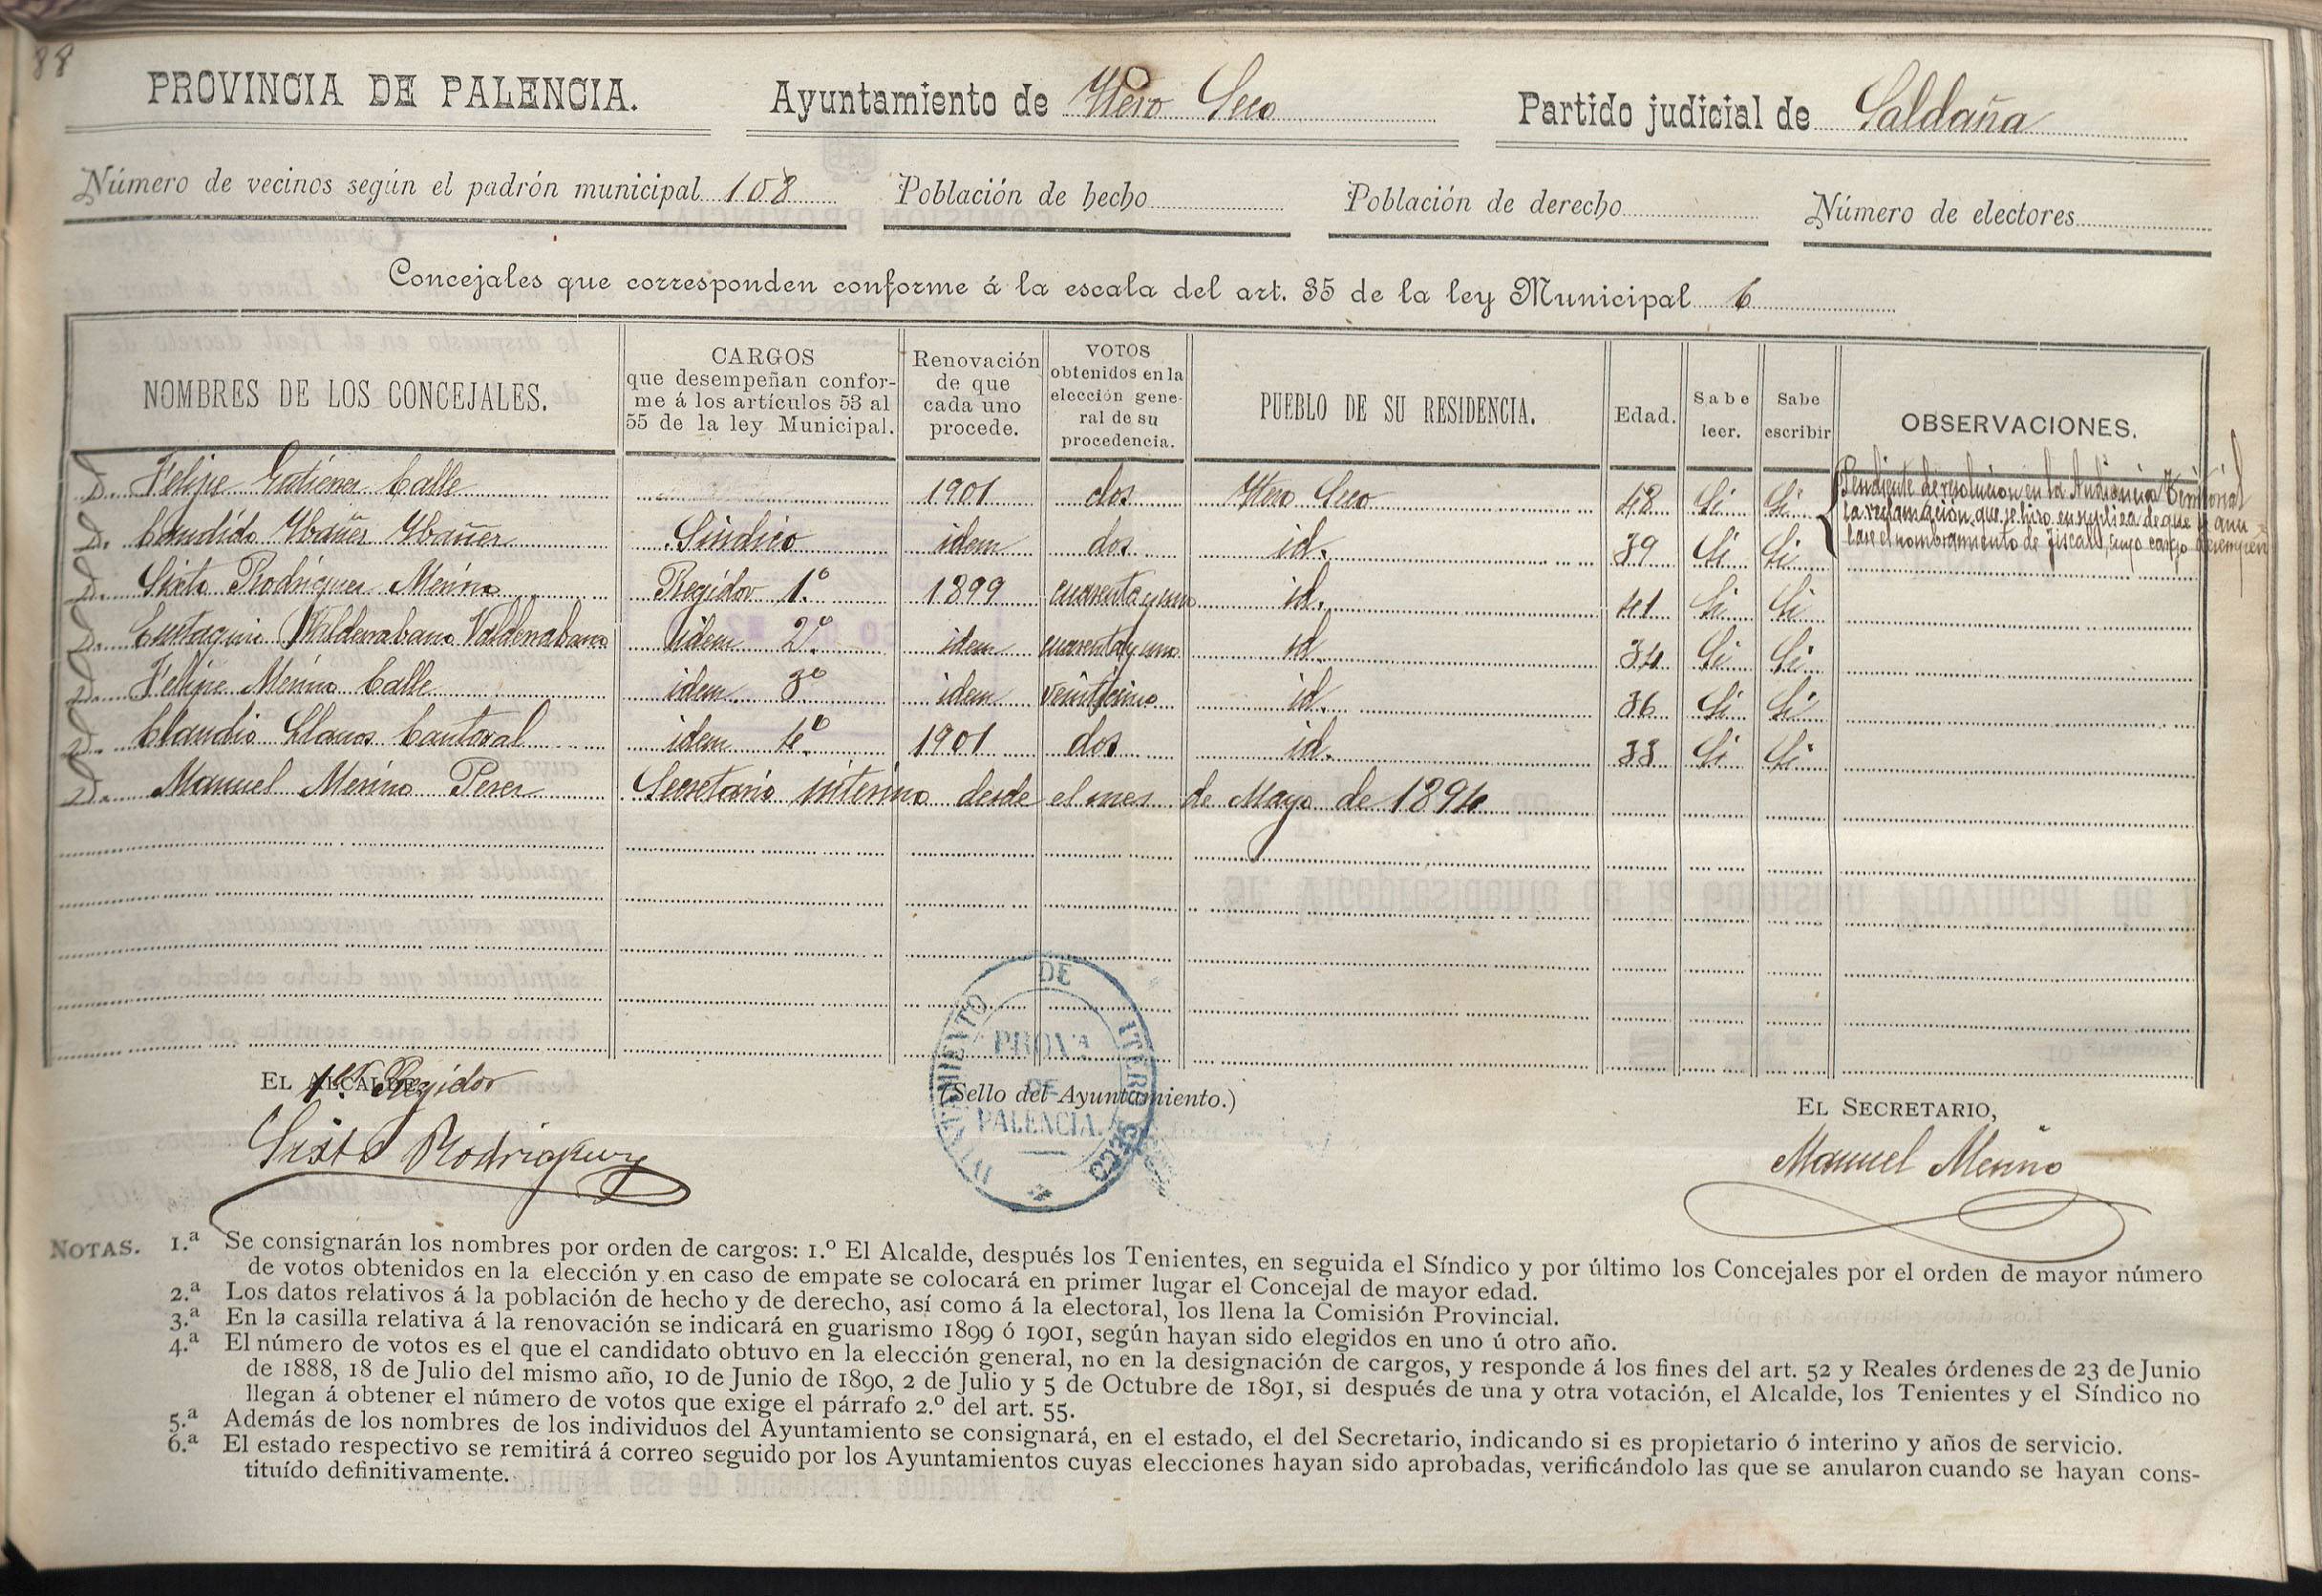 88
PROVINCIA DE PALENCIA. Ayuntamiento de Ytero Seco Partido judicial de Saldaña
Número de vecinos según el padrón municipal 108 Población de hecho Población de derecho Número de electores
Concejales que corresponden conforme á la escala del art. 35 de la ley Municipal 6
NOMBRES DE LOS CONCEJALES. CARGOS que desempeñan confor- me á los artículos 53 al 55 de la ley Municipal. Renovación de que cada uno procede. VOTOS obtenidos en la elección gene- ral de su procedencia. PUEBLO DE SU RESIDENCIA. Edad. Sabe leer. Sabe escribir OBSERVACIONES.
D. Felipe Gutiérrez Calle 1901 dos Ytero Seco 48 Si Si Pendiente de resolucion en la Audiencia Territorial
la reclamación que se hizo en suplica de que se anu
lase el nombramiento de Fiscal, cuyo cargo desempeña
D. Candido Ybañez Ybañez Sindico idem dos id. 39 Si Si
D. Sixto Rodriguez Merino Regidor 1.º 1899 cuarenta y uno id. 41 Si Si
D. Eustaquio Valderrabano Valderrabano idem 2.º idem cuarenta y uno id. 34 Si Si
D. Felipe Merino Calle idem 3.º idem veinticinco id. 36 Si Si
D. Claudio Llanos Cantoral idem 4.º 1901 dos id. 33 Si Si
D. Manuel Merino Perez Secretario interino desde el mes de Mayo de 1894
EL ALCALDE 1.er Regidor
(Sello del Ayuntamiento.)
AYUNTAMIENTO DE ITERO SECO
PROVA
DE
PALENCIA.
EL SECRETARIO,
Sixto Rodriguez
Manuel Merino
NOTAS. 1.ª Se consignarán los nombres por orden de cargos: 1.º El Alcalde, después los Tenientes, en seguida el Síndico y por último los Concejales por el orden de mayor número
de votos obtenidos en la elección y en caso de empate se colocará en primer lugar el Concejal de mayor edad.
2.ª Los datos relativos á la población de hecho y de derecho, así como á la electoral, los llena la Comisión Provincial.
3.ª En la casilla relativa á la renovación se indicará en guarismo 1899 ó 1901, según hayan sido elegidos en uno ú otro año.
4.ª El número de votos es el que el candidato obtuvo en la elección general, no en la designación de cargos, y responde á los fines del art. 52 y Reales órdenes de 23 de Junio
de 1888, 18 de Julio del mismo año, 10 de Junio de 1890, 2 de Julio y 5 de Octubre de 1891, si después de una y otra votación, el Alcalde, los Tenientes y el Síndico no
llegan á obtener el número de votos que exige el párrafo 2.º del art. 55.
5.ª Además de los nombres de los individuos del Ayuntamiento se consignará, en el estado, el del Secretario, indicando si es propietario ó interino y años de servicio.
6.ª El estado respectivo se remitirá á correo seguido por los Ayuntamientos cuyas elecciones hayan sido aprobadas, verificándolo las que se anularon cuando se hayan cons-
tituído definitivamente.